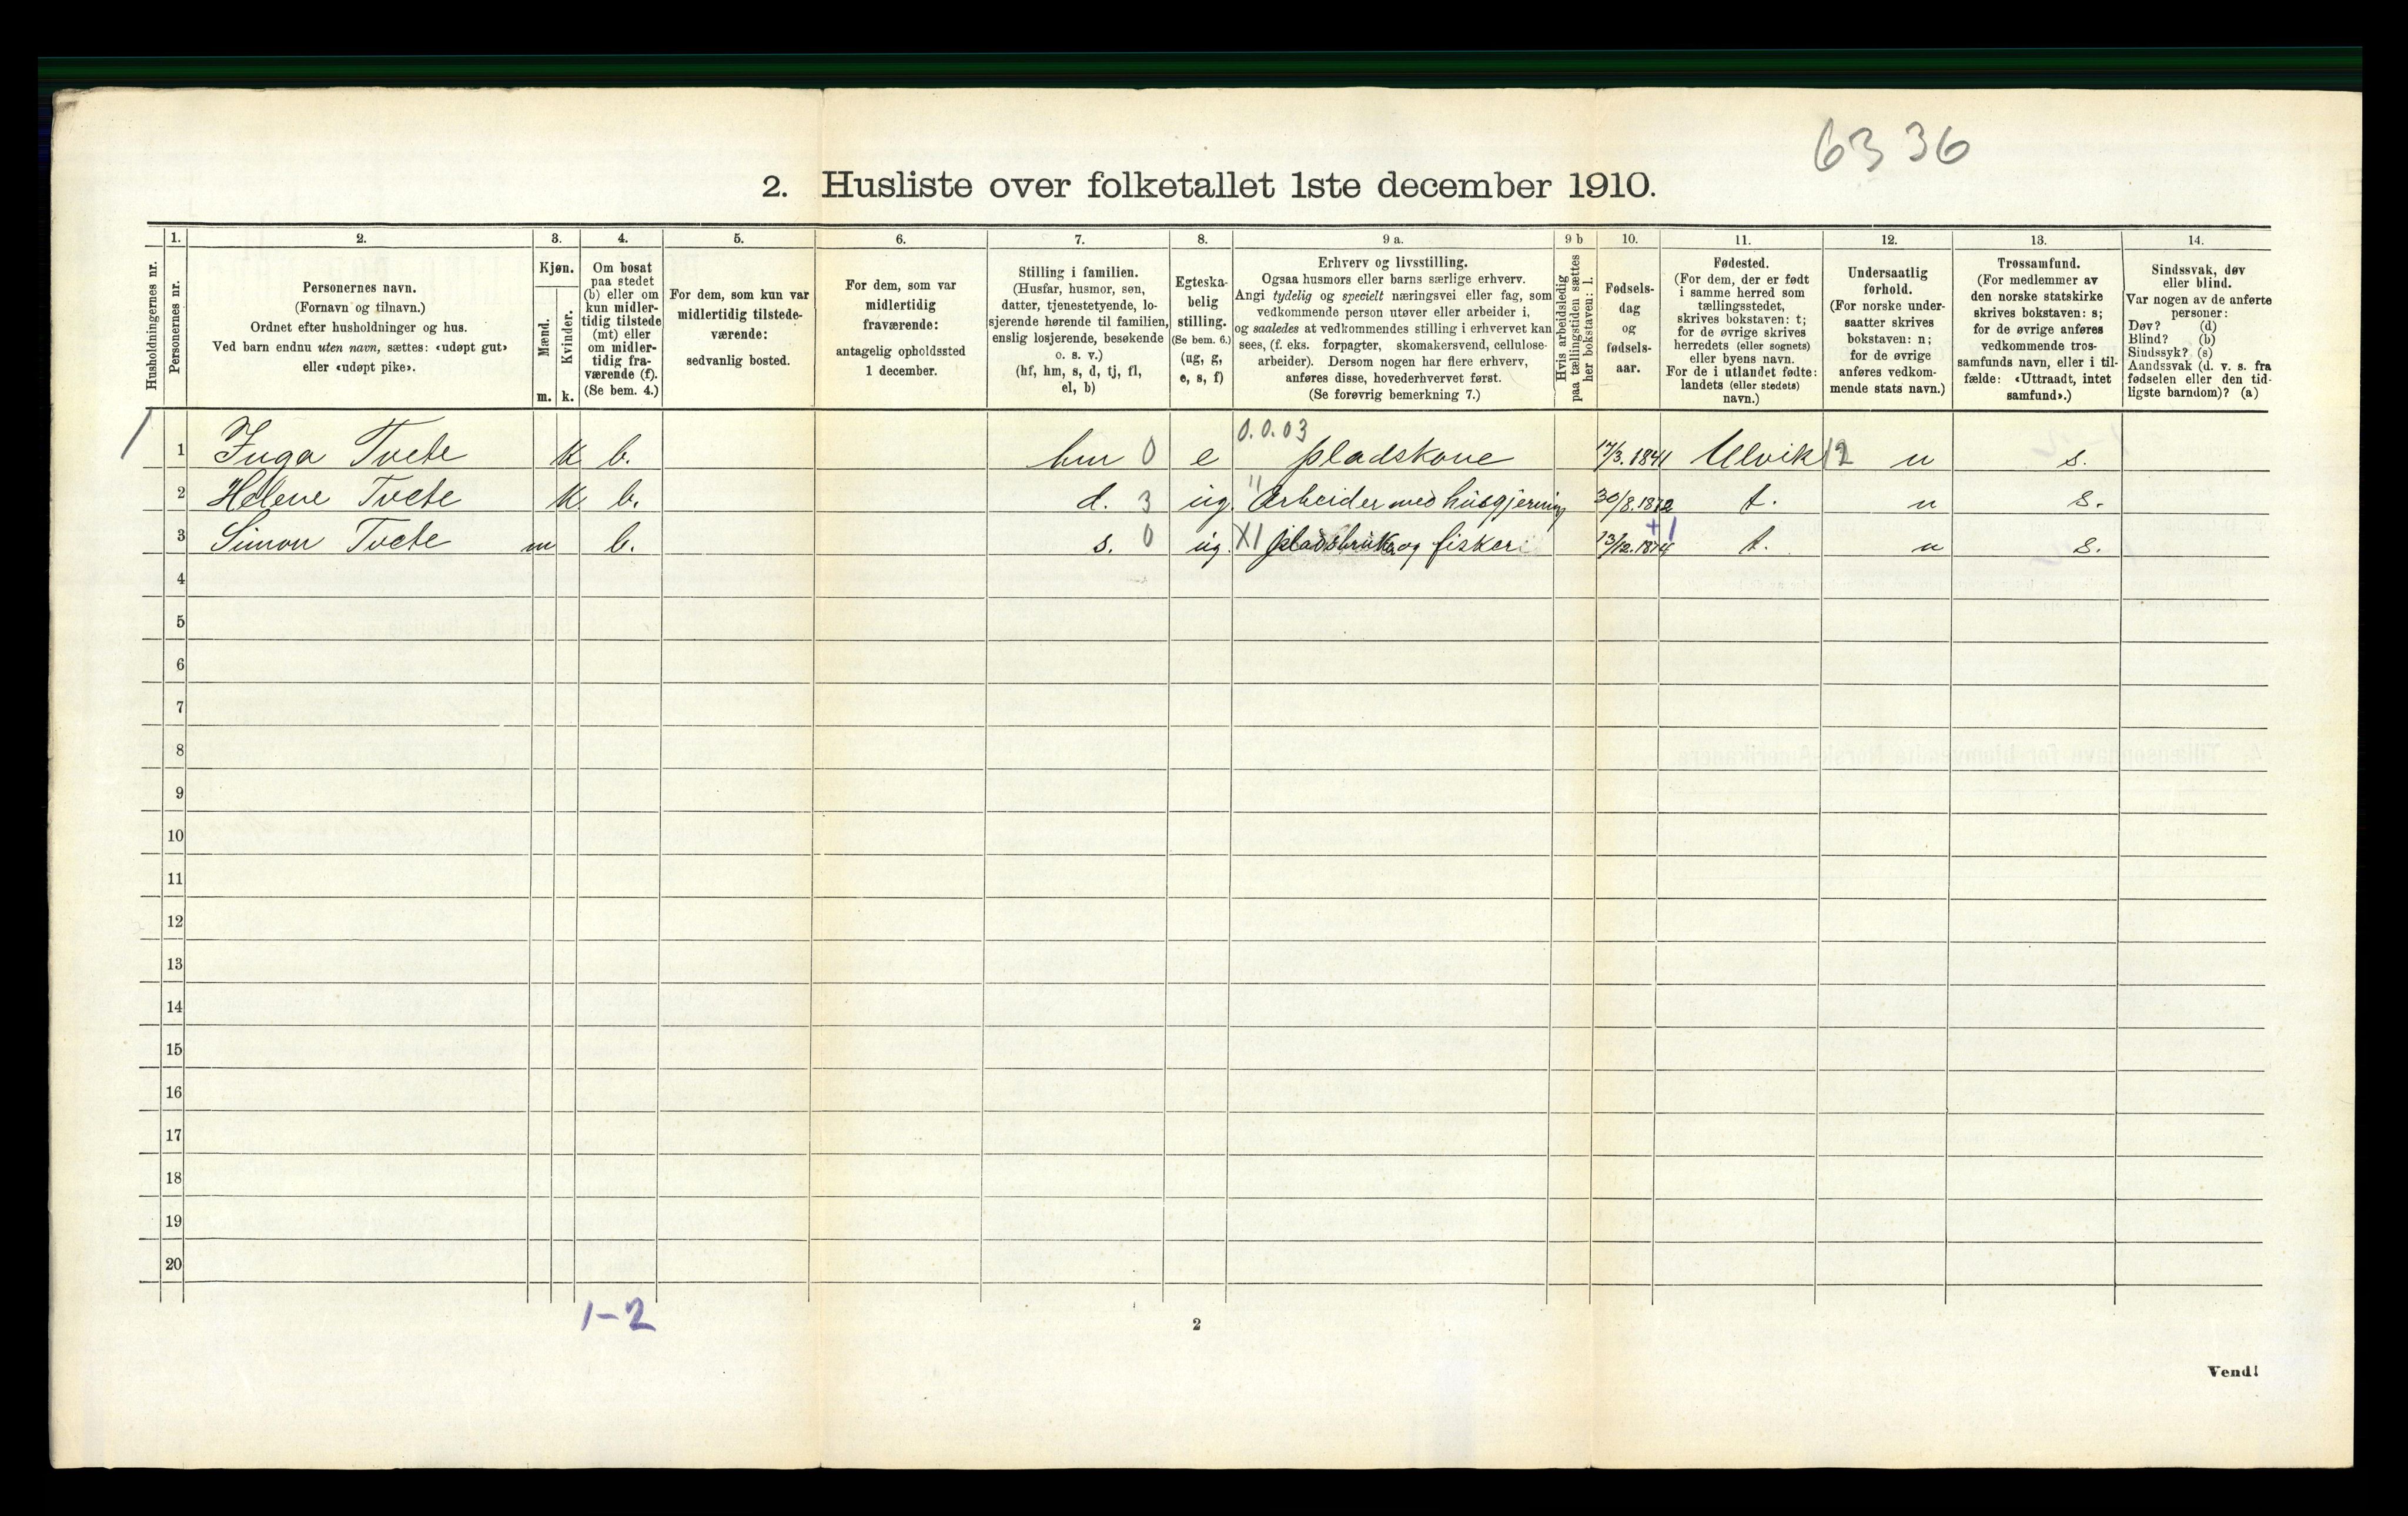 6336
2. Husliste over folketallet 1ste december 1910.
Husholdningernes nr.
1.
Personernes nr.
2.
Personernes navn.
(Fornavn og tilnavn.)
Ordnet efter husholdninger og hus.
Ved barn endnu uten navn, sættes: «udøpt gut»
eller «udøpt pike».
3.
Kjøn.
Mænd.
Kvinder.
m. k.
4.
Om bosat
paa stedet
(b) eller om
kun midler-
tidig tilstede
(mt) eller
om midler-
tidig fra-
værende (f).
(Se bem. 4.)
5.
For dem, som kun var
midlertidig tilstede-
værende:
sedvanlig bosted.
6.
For dem, som var
midlertidig
fraværende:
antagelig opholdssted
1 december.
7.
Stilling i familien.
(Husfar, husmor, søn,
datter, tjenestetyende, lo-
sjerende hørende til familien,
enslig losjerende, besøkende
o. s. v.)
(hf, hm, s, d, tj, fl,
el, b)
8.
Egteska-
belig
stilling.
(Se bem. 6.)
(ug, g,
e, s, f)
9 a.
Erhverv og livsstilling.
Ogsaa husmors eller barns særlige erhverv.
Angi tydelig og specielt næringsvei eller fag, som
vedkommende person utøver eller arbeider i,
og saaledes at vedkommendes stilling i erhvervet kan
sees, (f. eks. forpagter, skomakersvend, cellulose-
arbeider). Dersom nogen har flere erhverv,
anføres disse, hovederhvervet først.
(Se forøvrig bemerkning 7.)
9 b
Hvis arbeidsledig
paa tællingstiden sættes
her bokstaven: l.
10.
Fødsels-
dag
og
fødsels-
aar.
11.
Fødested.
(For dem, der er født
i samme herred som
tællingsstedet,
skrives bokstaven: t;
for de øvrige skrives
herredets (eller sognets)
eller byens navn.
For de i utlandet fødte:
landets (eller stedets)
navn.)
12.
Undersaatlig
forhold.
(For norske under-
saatter skrives
bokstaven: n;
for de øvrige
anføres vedkom-
mende stats navn.)
13.
Trossamfund.
(For medlemmer av
den norske statskirke
skrives bokstaven: s;
for de øvrige anføres
vedkommende tros-
samfunds navn, eller i til-
fælde: «Uttraadt, intet
samfund».)
14.
Sindssvak, døv
eller blind.
Var nogen av de anførte
personer:
Døv? (d)
Blind? (b)
Sindssyk? (s)
Aandssvak (d. v. s. fra
fødselen eller den tid-
ligste barndom)? (a)
0.0.03
1 1 Inga Tvete k b. hm 0 e pladskone 17/3.1841 Ulvik 12 n s.
2 Helene Tvete k b. d. 3 ug. " Arbeider med husgjerning 30/8.1872 t. n s.
+1
3 Simon Tvete m b. s. 0 ug. X1 pladsbruker og fisker 13/12.1874 t. n s.
4
5
6
7
8
9
10
11
12
13
14
15
16
17
18
19
20
1-2
2
Vend!